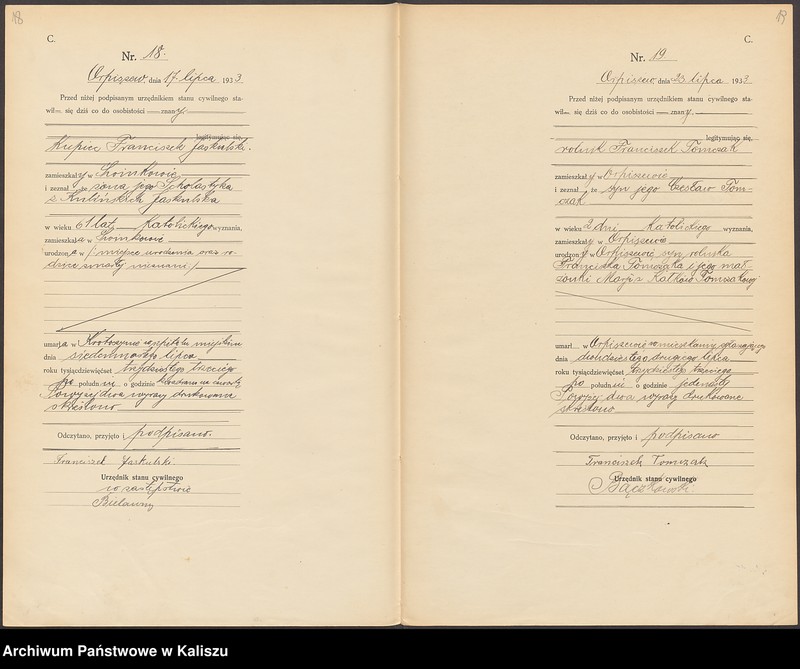 18
C.
Nr. 18.
Orpiszew, dnia 17 lipca 1933
Przed niżej podpisanym urzędnikiem stanu cywilnego sta-
wił— się dziś co do osobistości — znany.
legitymując się,
kupiec Franciszek Jaskulski.
zamieszkały w
i zeznał, że żona jego Scholastyka
z Kulińskich Jaskulska
w wieku 61 lat, katolickiego wyznania,
zamieszkała w
urodzona w /: miejsce urodzenia oraz ro-
dzice zmarłej nieznani :/
umarła w Krotoszynie w szpitalu miejskim
dnia siedemnastego lipca
roku tysiącdziewięćset trzydziestego trzeciego
po południu o godzinie
Powyżej dwa wyrazy drukowane
skreślono.
Odczytano, przyjęto i podpisano.
Franciszek Jaskulski
Urzędnik stanu cywilnego
w zastępstwie
Bielawny
19
C.
Nr. 19
Orpiszew, dnia 23 lipca 1933
Przed niżej podpisanym urzędnikiem stanu cywilnego sta-
wił— się dziś co do osobistości — znany.
legitymując się,
rolnik Franciszek Tomczak
zamieszkały w Orpiszewie
i zeznał, że syn jego Czesław Tom-
czak
w wieku 2 dni katolickiego wyznania,
zamieszkały w Orpiszewie
urodzony w Orpiszewie syn rolnika
Franciszka Tomczaka i jego mał-
żonki Marji z Ratków Tomczakowej
umarł w Orpiszewie w mieszkaniu
dnia dwudziestego drugiego lipca
roku tysiącdziewięćset trzydziestego trzeciego
po południu o godzinie jedenastej
Powyżej dwa wyrazy drukowane
skreślono
Odczytano, przyjęto i podpisano
Franciszek Tomczak
Urzędnik stanu cywilnego
Bączkowski
Archiwum Państwowe w Kaliszu